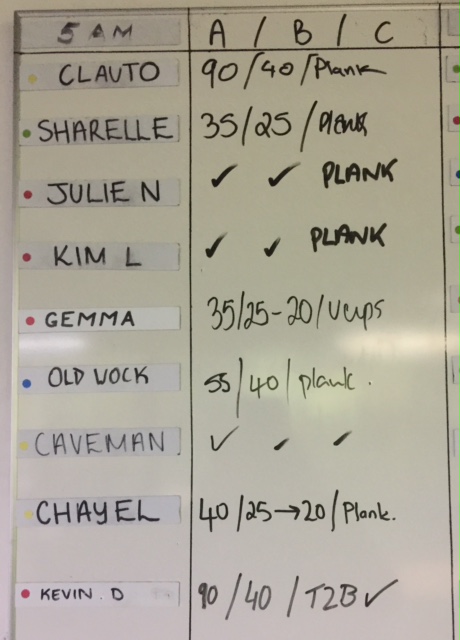 5 AM A / B / C
CLAUTO 90/40/Plank
SHARELLE 35/25/Plank
JULIE N ✓ ✓ PLANK
KIM L ✓ ✓ PLANK
GEMMA 35/25-20/Vups
OLD WOCK 55/40/plank.
CAVEMAN ✓ ✓ ✓
CHAYEL 40/25→20/Plank.
KEVIN. D 90/40/T2B✓